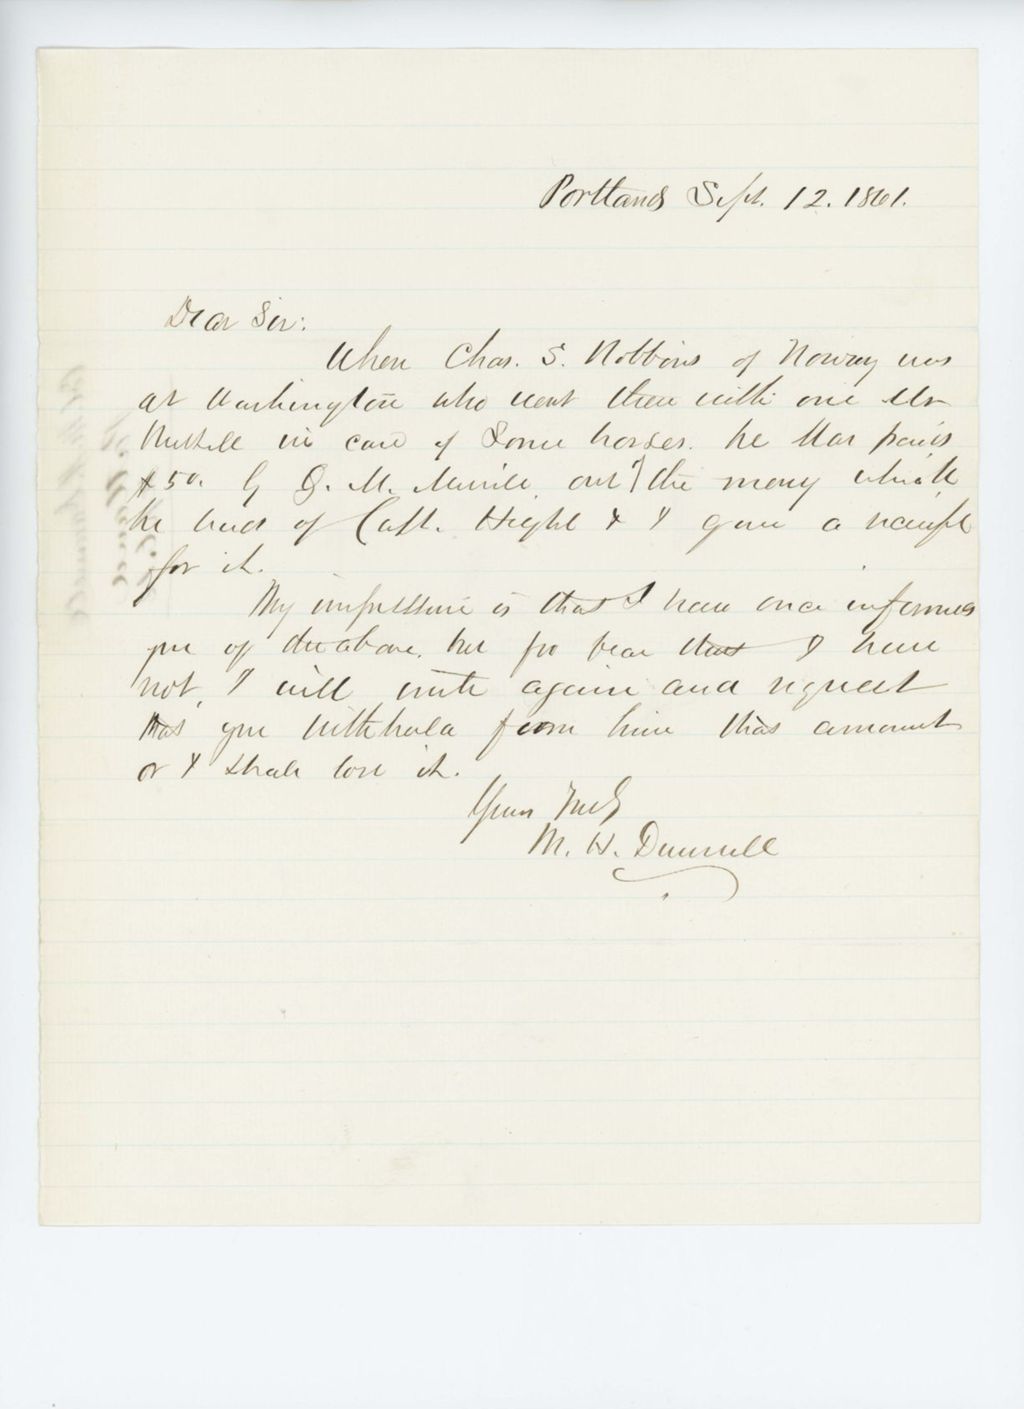 Portland Sept. 12. 1861.
Dear Sir:
When Chas. S. Robbins of Norway was
at Washington who went there with one Mr
in care of Some horses. he was paid
$50. by G. M. Merrill, out of the money which
he had of Capt. Hight & I gave a receipt
for it.
My impression is that I have once informed
you of the above, but for fear that I have
not, I will write again and request
that you withhold from him that amount
or I shall lose it.
Yours Truly
M. H. Dunnell